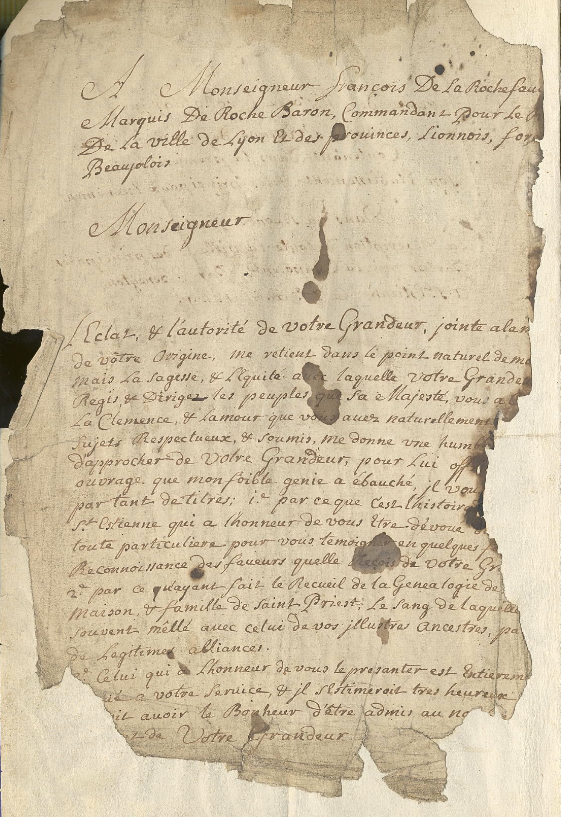 A Monseigneur françois De la Rochefau
Marquis De Roche Baron, Commandant pour le
De la ville de Lyon Et des provinces, Lionnois, for
Beaujolois
Monseigneur
L'Eclat, & l'autorité de votre Grandeur, jointe a lan
de votre Origine, me retient dans le point naturel de m
mais La sagesse, & L'Equité avec laquelle votre Grande
Regis & Dirigez les peuples que sa Majesté, vous a
La Clemence, & lamour que vous auez naturellement
sujets Respectueux, & soumis, me donne vne hum
d'approcher de Votre Grandeur, pour Lui off
ouvrage que mon foible genie a ébauché, jl vou
par tant de titres; 1.º par ce que c'est l'histoire
St Estienne qui a lhonneur de vous être dévoué
toute particuliere pour vous temoigner en quelques
Reconnoissance des faveurs quelle Reçois de votre Gr
2.º par ce qu'ayant fait le Recueil de la Genealogie de
maison, & famille de Saint Priest, Le sang de laquelle
souvent mêllé avec celui de vos jllustres Ancestres, pa
de Legitimes alliances.
Celui qui a Lhonneur de vous le presanter est Entierem
a votre service, & jl s'estimeroit tres heureux
auoir le Bonheur d'être admis au no
de Votre Grandeur